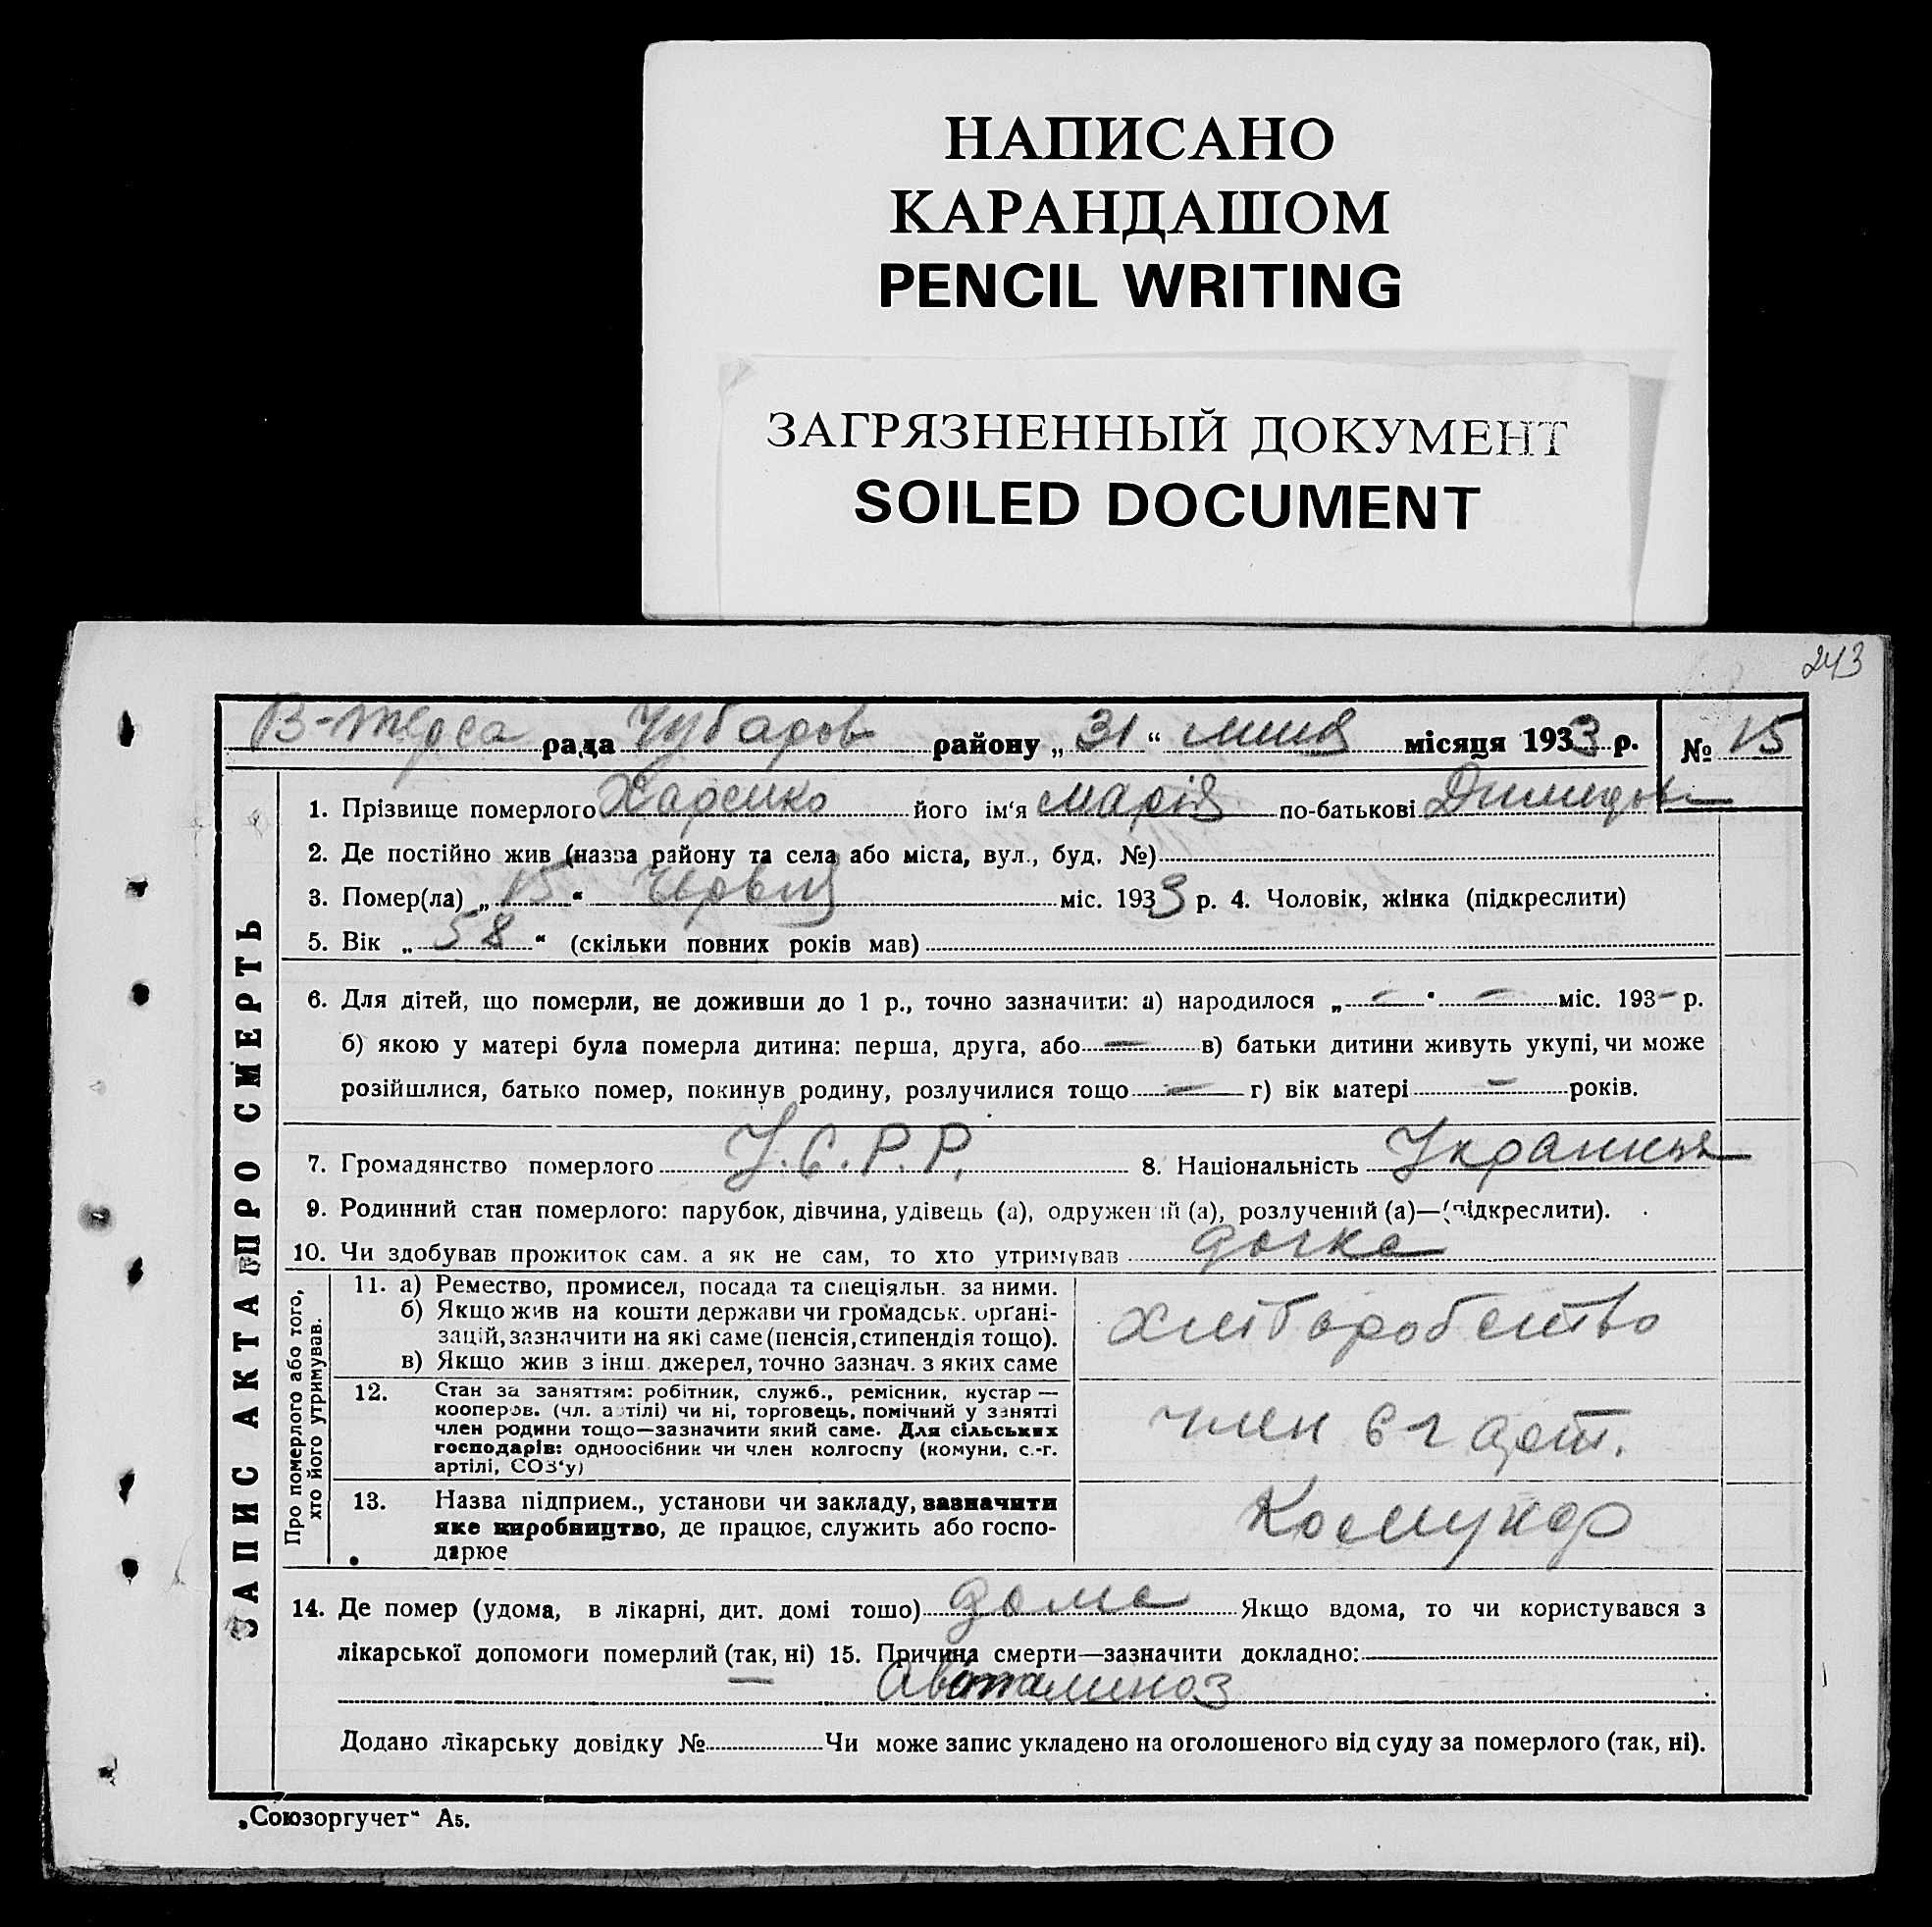 НАПИСАНО
КАРАНДАШОМ
PENCIL WRITING
ЗАГРЯЗНЕННЫЙ ДОКУМЕНТ
SOILED DOCUMENT
243
В-Терса рада Чубаров району „ 31 “ липня місяця 1933 р. № 15
ЗАПИС АКТА ПРО СМЕРТЬ
1. Прізвище померлого Харенко його ім‘я Марія по-батькові Димидов
2. Де постійно жив (назва району та села або міста, вул., буд. №)
3. Помер(ла) „ 15 “ Червня міс. 1933 р. 4. Чоловік, жінка (підкреслити)
5. Вік „ 58 “ (скільки повних років мав)
6. Для дітей, що померли, не доживши до 1 р., точно зазначити: а) народилося „ — “ — міс. 193- р.
б) якою у матері була померла дитина: перша, друга, або — в) батьки дитини живуть укупі, чи може
розійшлися, батько помер, покинув родину, розлучилися тощо — г) вік матері — років.
7. Громадянство померлого У.С.Р.Р. 8. Національність Українка
9. Родинний стан померлого: парубок, дівчина, удівець (а), одружений (а), розлучений (а)—(підкреслити).
10. Чи здобував прожиток сам. а як не сам, то хто утримував дочка
Про померлого або того,
хто його утримував.
11. а) Ремество, промисел, посада та спеціяльн. за ними.
б) Якщо жив на кошти держави чи громадськ. органі-
зацій, зазначити на які саме (пенсія, стипендія тощо).
в) Якщо жив з інш. джерел, точно зазнач. з яких саме
хліборобство
12. Стан за заняттям: робітник, служб., ремісник, кустар —
кооперов. (чл. артілі) чи ні, торговець, помічний у занятті
член родини тощо—зазначити який саме. Для сільських
господарів: одноосібник чи член колгоспу (комуни, с.-г.
артілі, СОЗ‘у)
член с г арт.
13. Назва підприєм., установи чи закладу, зазначити
яке виробництво, де працює, служить або госпо-
дарює
Комунар
14. Де помер (удома, в лікарні, дит. домі тошо) дома Якщо вдома, то чи користувався з
лікарської допомоги померлий (так, ні) 15. Причина смерти—зазначити докладно:
Авітаминоз
Додано лікарську довідку № Чи може запис укладено на оголошеного від суду за померлого (так, ні).
„Союзоргучет“ А5.